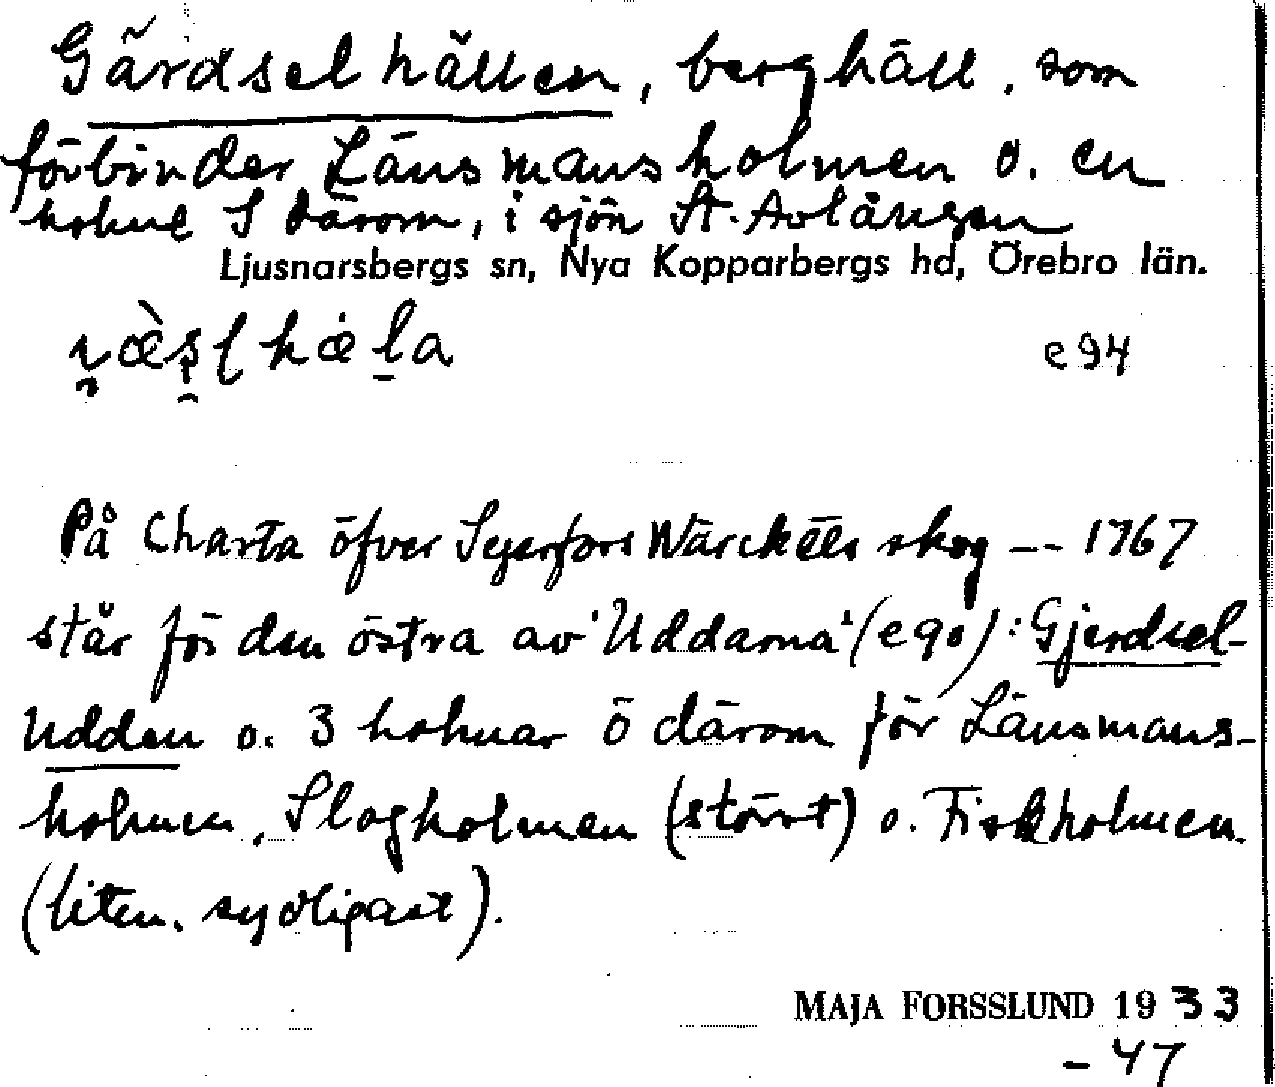 Gärdselhällen, berghäll, som
förbinder Länsmansholmen o. en
holme S därom, i sjön St. Avlången
Ljusnarsbergs sn, Nya Kopparbergs hd, Örebro län.
e94
På Charta öfver Segerfors Wärckéts skog -- 1767
står för den östra av "Uddarna" (e90): Gjerdsel-
Udden o. 3 holmar ö därom för Länsmans-
holmen, Slogholmen (störst) o. Fiskholmen.
(liten, sydligast).
MAJA FORSSLUND 1933
-47